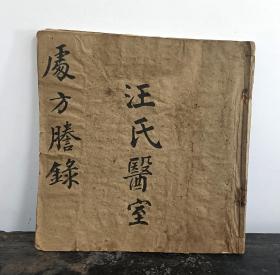 汪氏醫室
處方謄錄